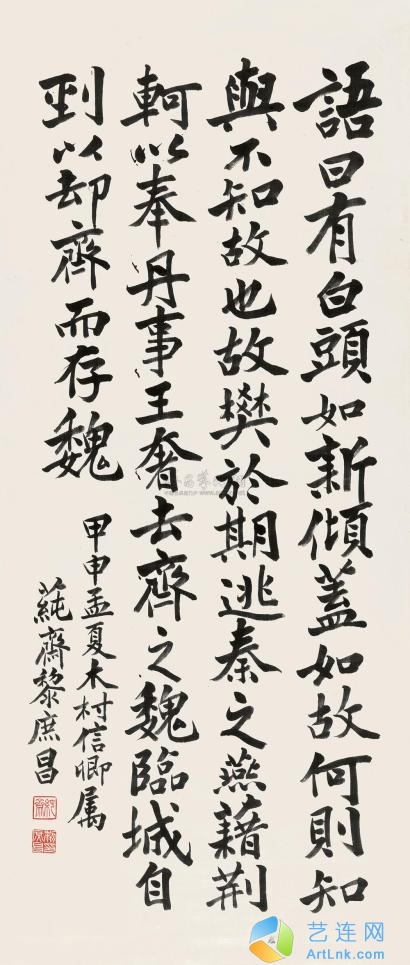 語曰有白頭如新傾蓋如故何則知
與不知故也故樊於期逃秦之燕藉荊
軻以奉丹事王奢去齊之魏臨城自
剄以却齊而存魏
甲申孟夏木村信卿属
蒓齋黎庶昌
艺连网
ArtLnk.com